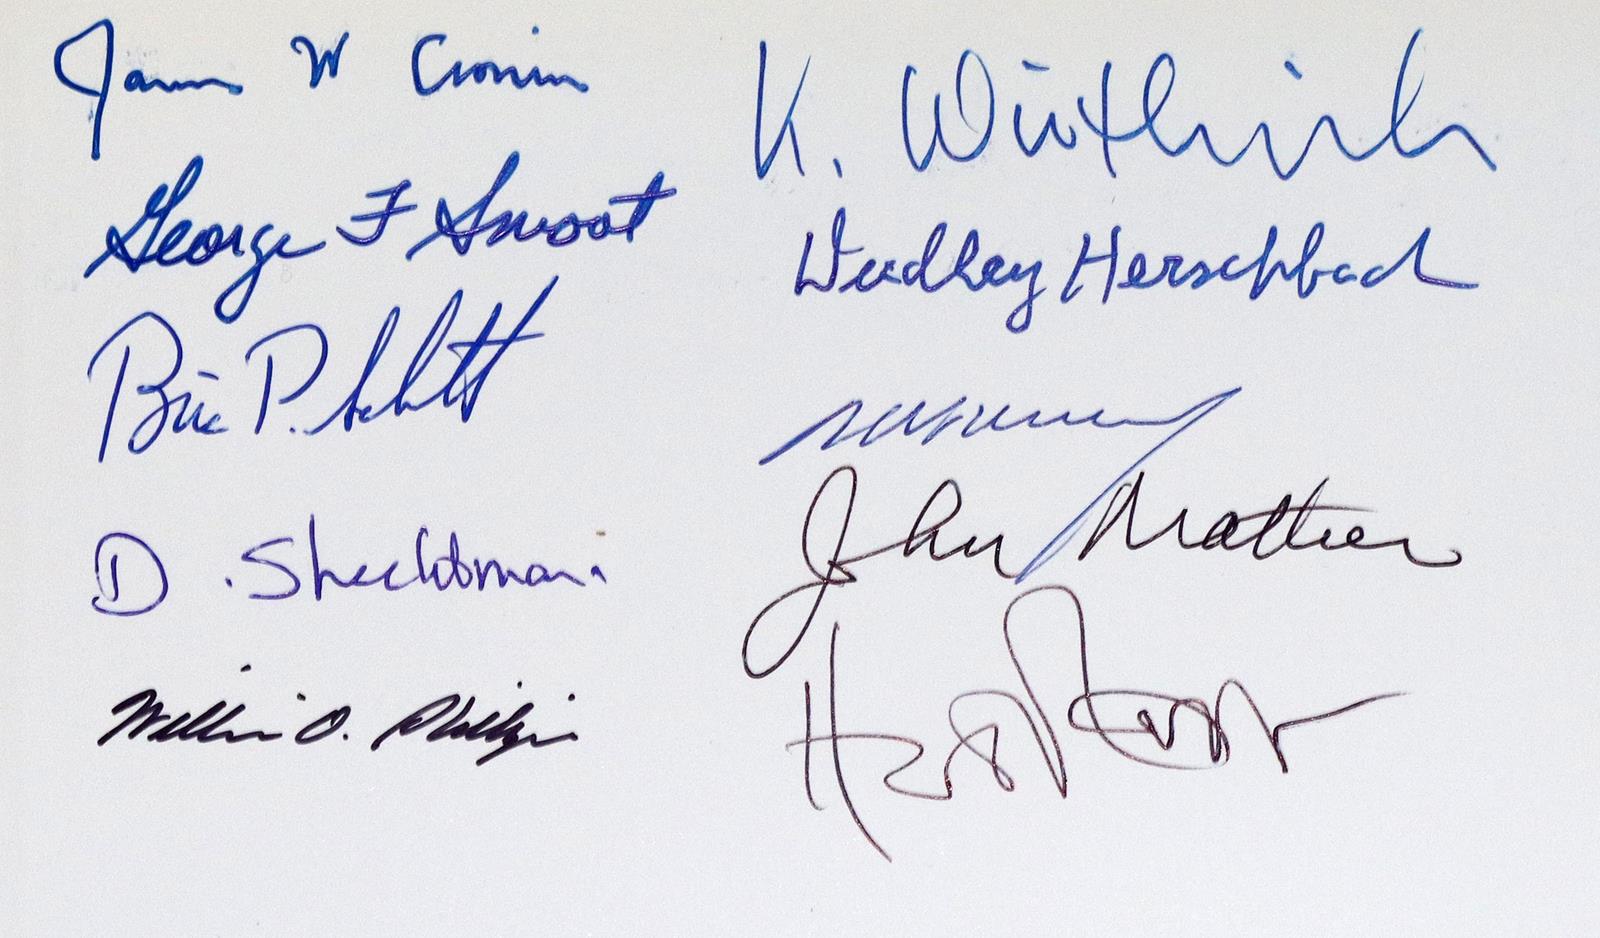 James W Cronin
George F Smoot
Brian P. Schmidt
D. Shechtman
William D. Phillips
K. Wüthrich
Dudley Herschbach
John Mather